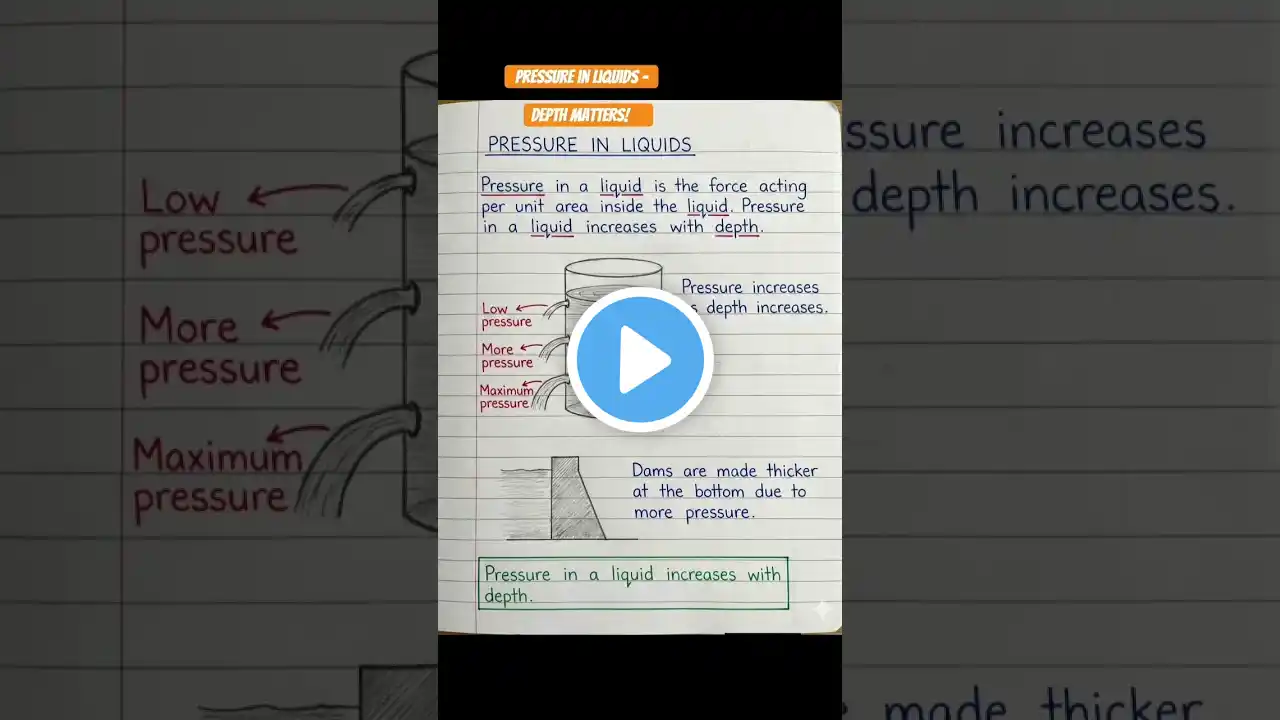 PRESSURE IN LIQUIDS -
DEPTH MATTERS!
PRESSURE IN LIQUIDS
Pressure in a liquid is the force acting
per unit area inside the liquid. Pressure
in a liquid increases with depth.
Pressure increases
depth increases.
Low
pressure
More
pressure
Maximum
pressure
Dams are made thicker
at the bottom due to
more pressure.
Pressure in a liquid increases with
depth.
Low
pressure
More
pressure
Maximum
pressure
ssure increases
depth increases.
made thicker